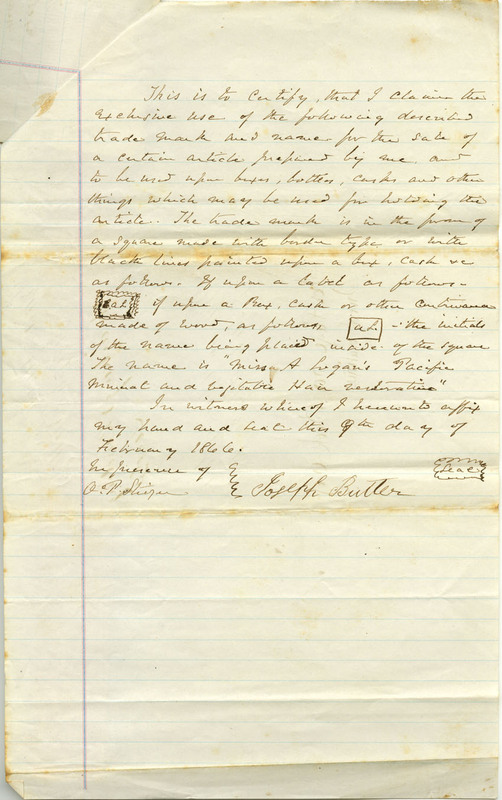 This is to Certify, that I claim the
exclusive use of the following described
trade mark and name for the sale of
a certain article prepared by me and
to be used upon boxes, bottles, casks and other
things which may be used for holding the
article. The trade mark is in the form of
a square made with border type or with
black lines painted upon a box, cask &c
as follows. If upon a label as follows-
a.L if upon a Box, cask or other contrivance
made of wood, as follows: a.L - the initials
of the name being placed inside of the square
The name is "Miss A Logan's Pacific
Mineral and vegitable Hair restorative"
In witness whereof I hereunto affix
my hand and seal this 9th day of
February 1866.
In presence of
O. P. Joseph Butler Seal